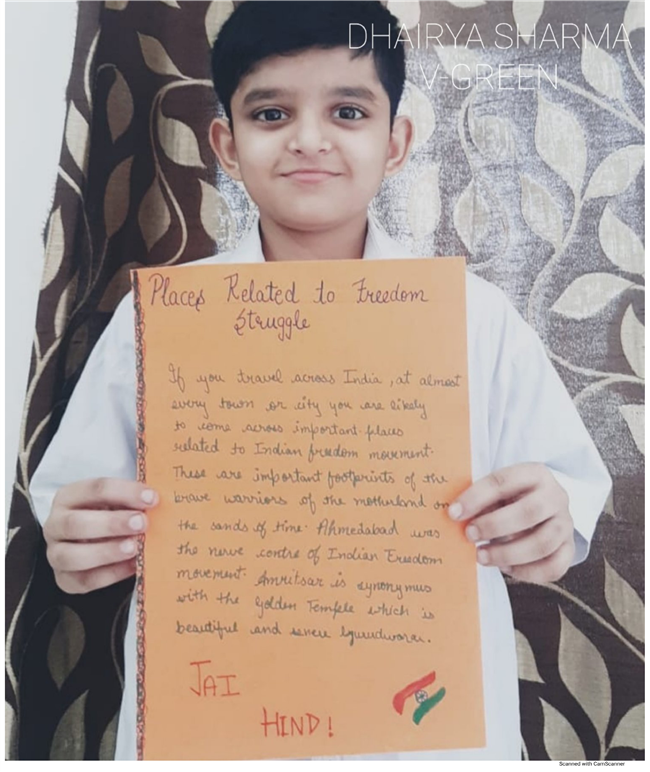 DHAIRYA SHARMA
V-GREEN
Places Related to Freedom
Struggle
If you travel across India, at almost
every town or city you are likely
to come across important places
related to Indian freedom movement.
These are important footprints of the
brave warriors of the motherland on
the sands of time. Ahmedabad was
the nerve centre of Indian Freedom
movement. Amritsar is synonymus
with the Golden Temple which is
beautiful and
JAI
HIND!
Scanned with CamScanner